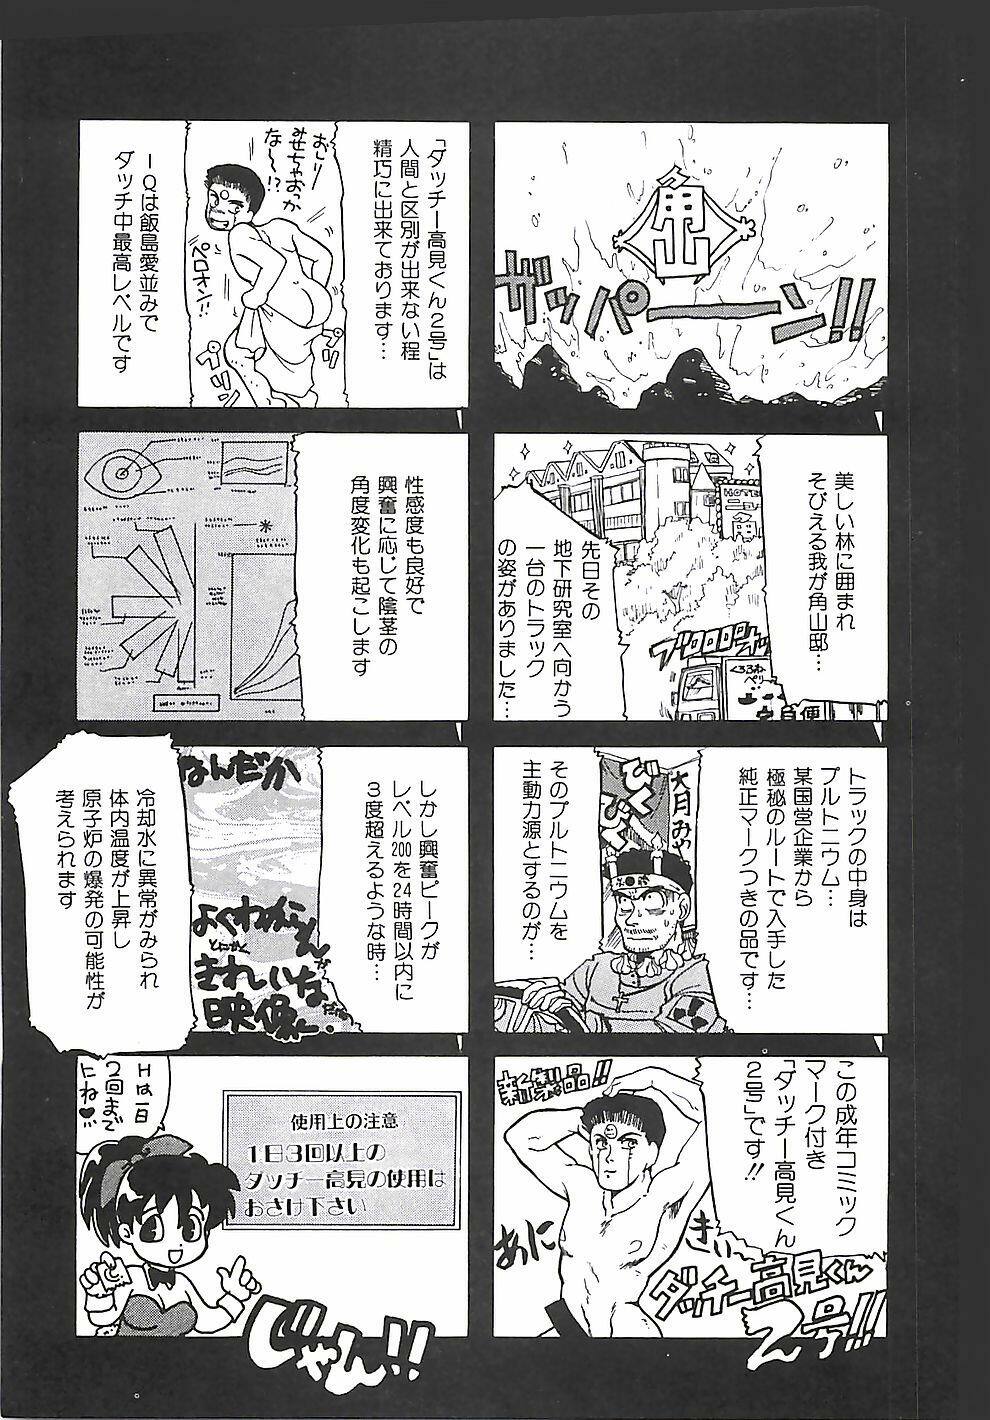 角山
ザッパーーン!!
美しい林に囲まれ
そびえる我が角山邸…
HOTEL
ニュー
角
先日その
地下研究室へ向かう
一台のトラック
の姿がありました…
ブロロロロオッ
くろねこ
ペリ
便
トラックの中身は
プルトニウム…
某国営企業から
極秘のルートで入手した
純正マークつきの品です…
大月みや
びくびく
そのプルトニウムを
主動力源とするのが…
この成年コミック
マーク付き
「ダッチー高見くん
2号」です!!
新製品!!
あに
きぃ
ダッチー高見くん
2号!!!
「ダッチー高見くん2号」は
人間と区別が出来ない程
精巧に出来ております…
おしり
みせちゃおっか
な〜!?
ペロキン!!
プリ
プリ
IQは飯島愛並みで
ダッチ中最高レベルです
性感度も良好で
興奮に応じて陰茎の
角度変化も起こします
しかし興奮ピークが
レベル200を24時間以内に
3度超えるような時…
なんだか
よくわからんが
とにかく
きれいな
映像だ…
冷却水に異常がみられ
体内温度が上昇し
原子炉の爆発の可能性が
考えられます
使用上の注意
1日3回以上の
ダッチー高見の使用は
おさけ下さい
Hは一日
2回まで
にね♥…
じゃん!!